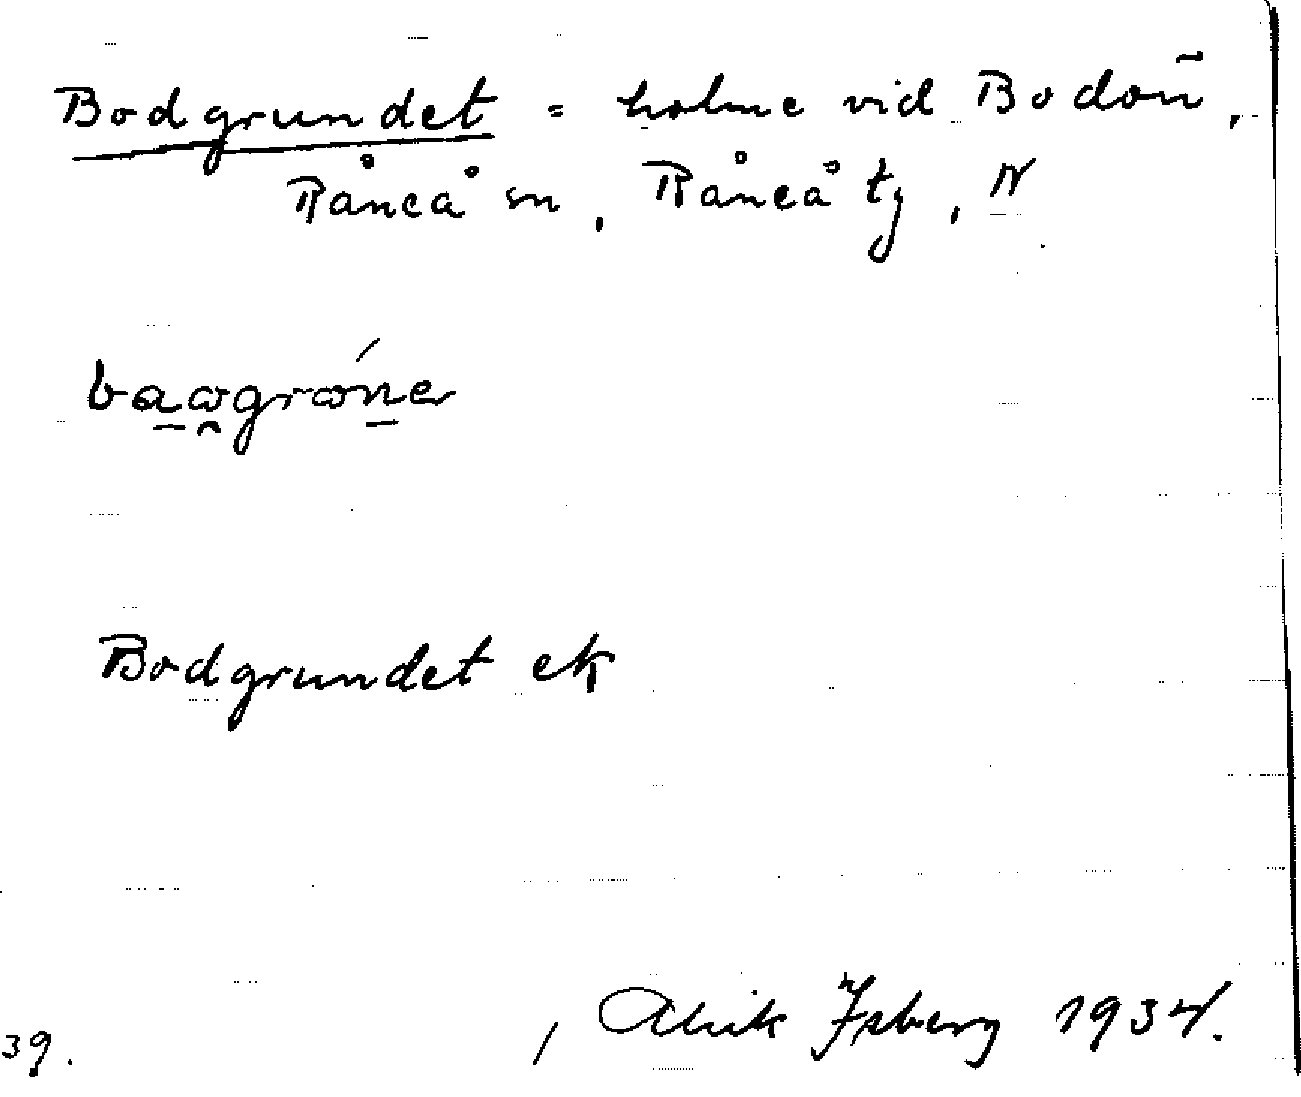 Bodgrundet = holme vid Bodön,
Råneå sn, Råneå tg, N
Bodgrundet ek
39. Alrik Ysberg 1934.